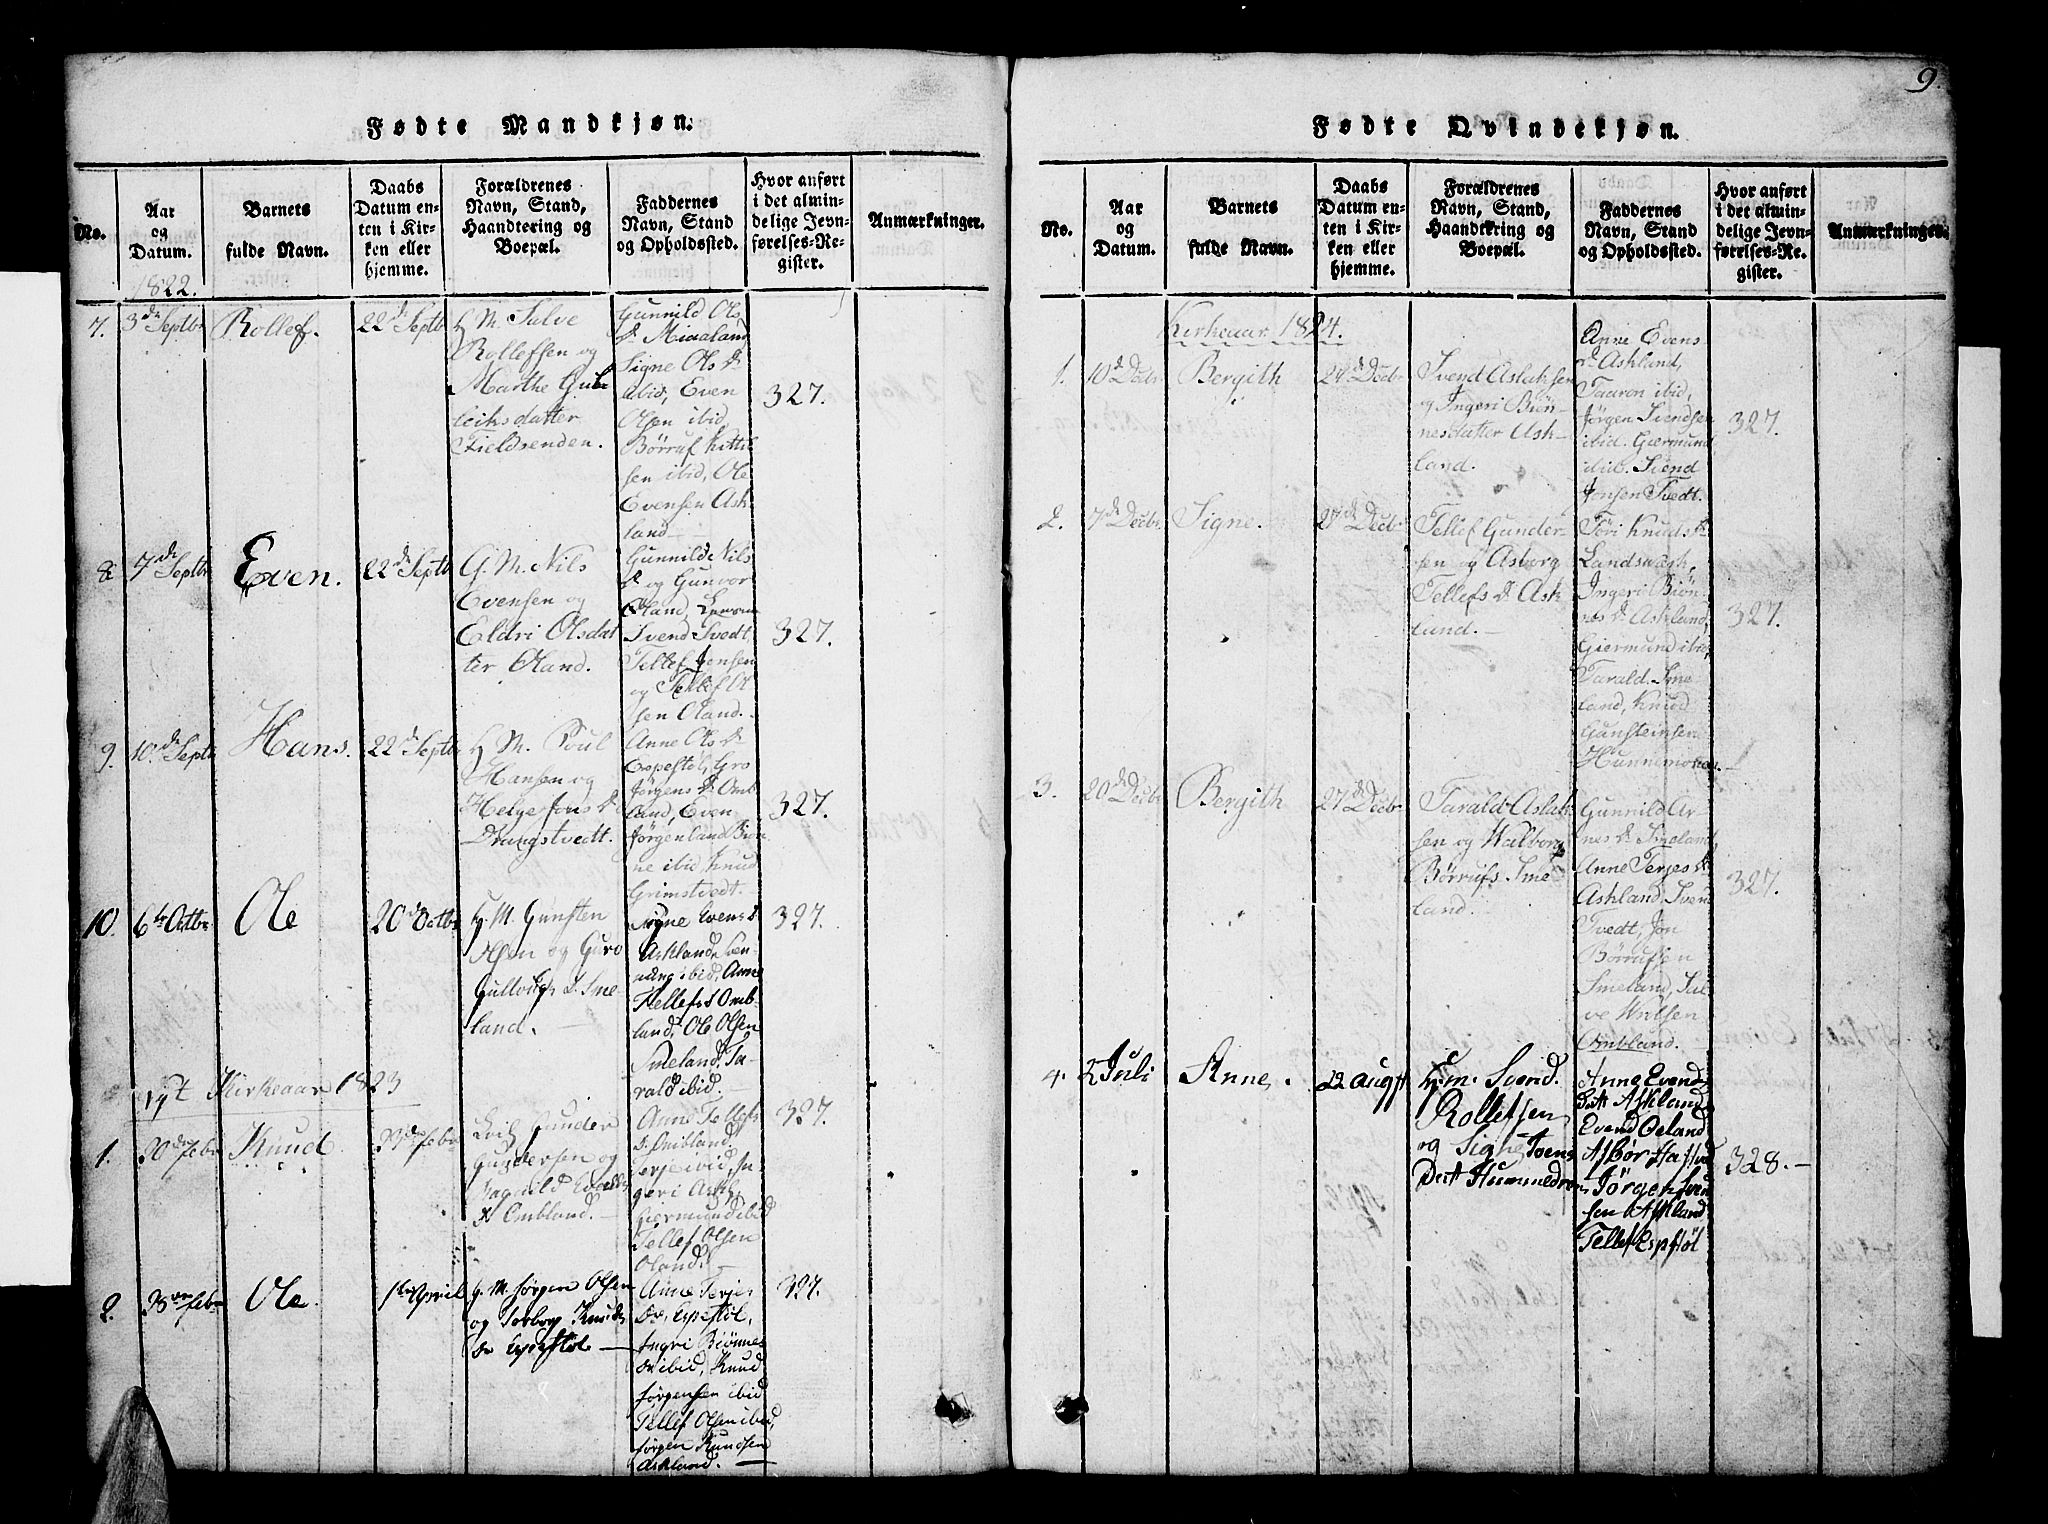 9.
Fødte Mandkjøn.
No.
Aar
og
Datum.
Barnets
fulde Navn.
Daabs
Datum en-
ten i Kir-
ken eller
hjemme.
Forældrenes
Navn, Stand,
Haandtering og
Boepæl.
Faddernes
Navn, Stand
og Opholdssted.
Hvor anført
i det almin-
delige Jevn-
førelses-Re-
gister.
Anmærkninger.
1822.
7.
3de Septbr
Rollef.
22de Septb
H. M. Salve
Rollefsen og
Marthe Gul
leiksdatter
Fieldsenden.
Gunnild Ols
Dr Miaaland
Signe Ols Dr
ibid, Even
Olsen ibid,
Børruf Kittil
sen ibid, Ole
Evensen Ask-
land
327.
8
7de Septbr
Even.
22de Septb
G. M. Nils
Evensen og
Eldri Olsdat
ter Oland.
Gunnild Nils
Dr og Gunvor
Oland,
Svend Tvedt
Tellef Jensen
og Tellef Ol
sen Oland.
327.
9.
10de Septb
Hans.
22de Septb
H. M. Poul
Hansen og
Helge Jons Dr
Drangstvedt.
Anne Ols Dr
Espestøl, Gro
Jørgens Dr Omb
land, Even
Jørgen land Biøn
ne ibid, Knud
Grimstvedt.
327.
10.
6te Octbr
Ole
20de Octbr
H. M. Gunsten
Olsen og Guro
Gulleiks D. Sme-
land.
Signe Evens D
Askland, Sven
nung ibid, Anne
Tellefs D Omb-
land, Ole Olsen
Smeland, Ta-
rald ibid.
327.
Kirkeaar 1823
1.
20de febr
Knud
23de febr
Gunder
Gundersen og
Ragnild Evens
Dr Ombland.
Anne Tellefs
D. Ombland.
Terje ibid, In-
geri Askl
Giermund ibid
Tellef Olsen
Oland.
327.
2.
28de febr
Ole
1ste April
H. M. Jørgen Olsen
og Torborg Knuds
Dr Espestøl
Anne Terjes
Dr Espestøl,
Ingri Biønnes
Dr ibid, Knud
Jørgensen ibid
Tellef Olsen ibid,
Jørgen Knudsen
Askland.
327.
Fødte Qvindekjøn.
No.
Aar
og
Datum.
Barnets
fulde Navn.
Daabs
Datum en-
ten i Kir-
ken eller
hjemme.
Forældrenes
Navn, Stand,
Haandtering og
Boepæl.
Faddernes
Navn, Stand
og Opholdssted.
Hvor anført
i det almin-
delige Jevn-
førelses-Re-
gister.
Anmærkninger.
Kirkeaar 1824.
1.
10de Decbr
Bergith
27de Decbr
Svend Aslaksen
og Ingeri Biøn-
nesdatter Ask-
land.
Anne Evens
Dr Askland,
Taaron ibid,
Jørgen Svendsen
ibid. Giermund
ibid. Svend
Jonsen Tvedt.
327.
2.
7de Decbr.
Signe.
27de Decbr
Tellef Gunder-
sen og Asborg
Tellefs Dr Ask
land.
Tøri Knuds Dr
Landsværk,
Ingeri Biøn-
nes Dr Askland,
Giermund ibid,
Tarald Sme
land, Knud
Gunsteinsen
327.
3.
20de Decbr
Bergith
27de Decbr
Tarald Aslak
sen og Walborg
Børrufs Sme
land.
Gunnild Ar-
nes Dr Smeland,
Anne Terjes Dr
Askland, Svend
Tvedt, Jon
Børrufsen
Smeland, Sal
ve
Ombland.
327.
4.
2 Juli
Anne.
22 Augst
H. m. Svend
Rollefsen
og Signe Joens
Datt
Anne Evend
Datt Askland
Evend Oeland
Asbør
Jørgen Svend
sen Askland
Tellef Espstøl
328.